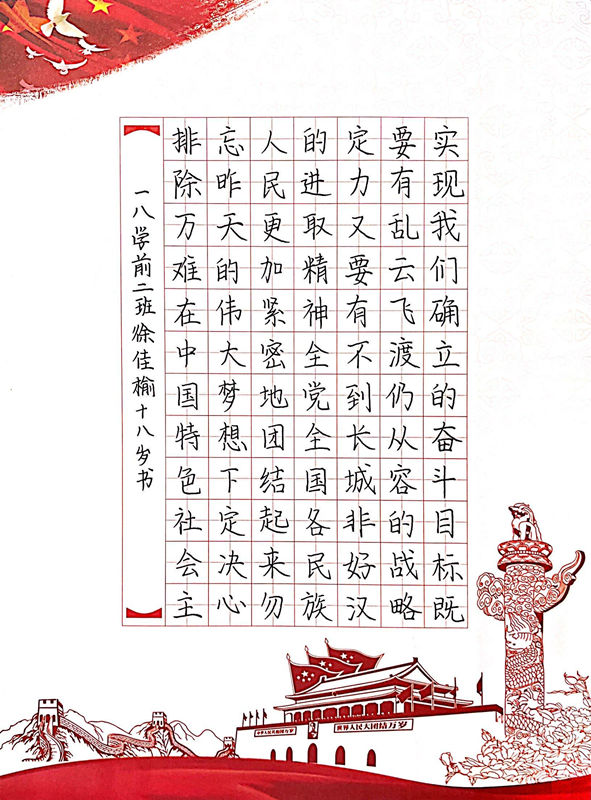 实现我们确立的奋斗目标既
要有乱云飞渡仍从容的战略
定力又要有不到长城非好汉
的进取精神全党全国各民族
人民更加紧密地团结起来勿
忘昨天的伟大梦想下定决心
排除万难在中国特色社会主
一八学前二班徐佳榆十八岁书
中华人民共和国万岁
世界人民大团结万岁